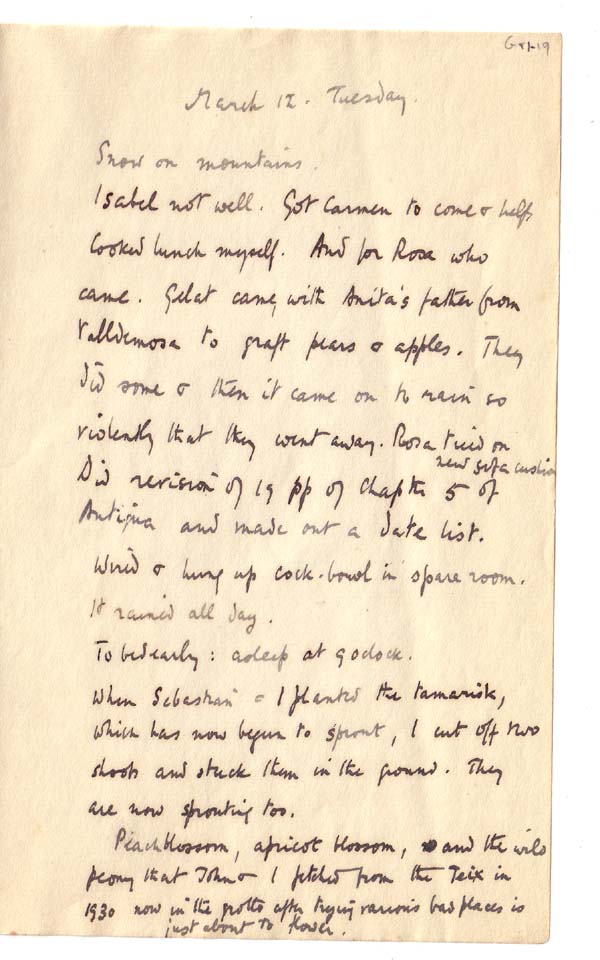 March 12. Tuesday.
Snow on mountains.
Isabel not well. Got Carmen to come & help.
Cooked lunch myself. And for Rosa who
came. Gelat came, with Anita's father from
Valldemosa to graft pears & apples. They
did some & then it came on to rain so
violently that they went away. Rosa tried on
new sofa cushion
Did revision of 19 pp of Chapter 5 of
Antigua and made out a date list.
Wired & hung up cock-bowl in spare room.
It rained all day.
To bed early: asleep at 9 oclock.
When Sebastian & I planted the tamarisk,
which has now begun to sprout, I cut off two
shoots and stuck them in the ground. They
are now sprouting too.
Peach blossom, apricot blossom, and the wild
peony that John & I fetched from the Teix in
1930 now in the grotto after trying various bad places is
just about to flower.